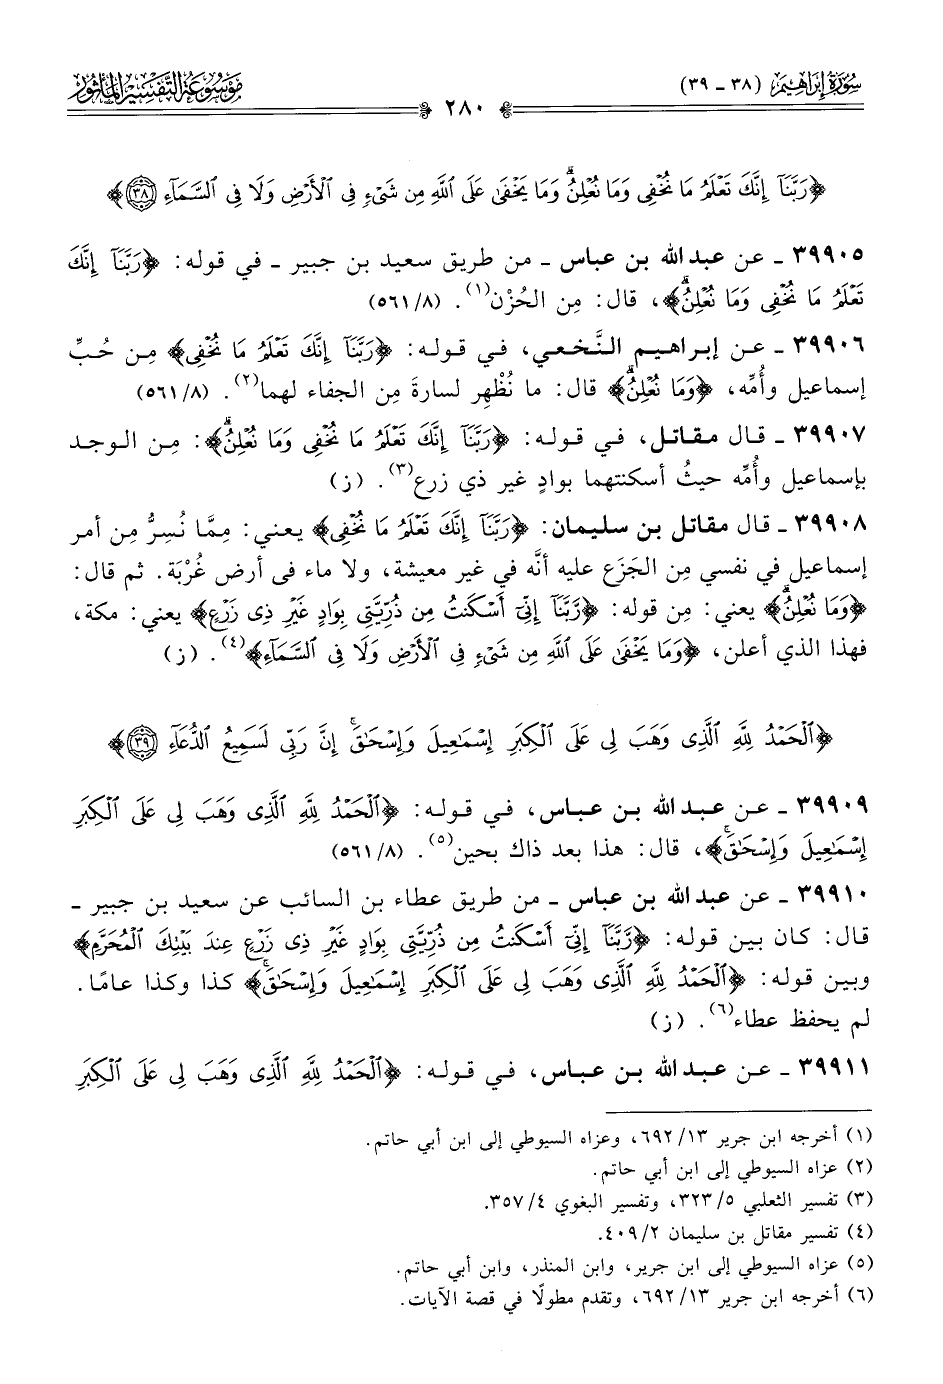 سُورَةُ إبْرَاهِيم (٣٨ - ٣٩)
٢٨٠
مَوْسُوعَة التَّفْسِير المَأْثُور
﴿رَبَّنَآ إِنَّكَ تَعْلَمُ مَا نُخْفِى وَمَا نُعْلِنُ ۗ وَمَا يَخْفَىٰ عَلَى ٱللَّهِ مِن شَىْءٍ فِى ٱلْأَرْضِ وَلَا فِى ٱلسَّمَآءِ ٣٨﴾
٣٩٩٠٥ - عن عبد الله بن عباس - من طريق سعيد بن جبير - في قوله: ﴿رَبَّنَآ إِنَّكَ
تَعْلَمُ مَا نُخْفِى وَمَا نُعْلِنُ ۗ﴾، قال: مِن الحُزْن(١). (٥٦١/٨)
٣٩٩٠٦ - عن إبراهيم النَّخعي، في قوله: ﴿رَبَّنَآ إِنَّكَ تَعْلَمُ مَا نُخْفِى﴾ مِن حُبِّ
إسماعيل وأُمِّه، ﴿وَمَا نُعْلِنُ ۗ﴾ قال: ما نُظْهِر لسارةَ مِن الجفاء لهما(٢). (٥٦١/٨)
٣٩٩٠٧ - قال مقاتل، في قوله: ﴿رَبَّنَآ إِنَّكَ تَعْلَمُ مَا نُخْفِى وَمَا نُعْلِنُ ۗ﴾: مِن الوجد
بإسماعيل وأُمِّه حيثُ أسكنتهما بوادٍ غير ذي زرع(٣). (ز)
٣٩٩٠٨ - قال مقاتل بن سليمان: ﴿رَبَّنَآ إِنَّكَ تَعْلَمُ مَا نُخْفِى﴾ يعني: مِمَّا نُسِرُّ مِن أمر
إسماعيل في نفسي مِن الجَزَع عليه أنَّه في غير معيشة، ولا ماء في أرض غُرْبَة. ثم قال:
﴿وَمَا نُعْلِنُ ۗ﴾ يعني: مِن قوله: ﴿رَّبَّنَآ إِنِّىٓ أَسْكَنتُ مِن ذُرِّيَّتِى بِوَادٍ غَيْرِ ذِى زَرْعٍ﴾ يعني: مكة،
فهذا الذي أعلن، ﴿وَمَا يَخْفَىٰ عَلَى ٱللَّهِ مِن شَىْءٍ فِى ٱلْأَرْضِ وَلَا فِى ٱلسَّمَآءِ﴾(٤). (ز)
﴿ٱلْحَمْدُ لِلَّهِ ٱلَّذِى وَهَبَ لِى عَلَى ٱلْكِبَرِ إِسْمَٰعِيلَ وَإِسْحَٰقَ ۚ إِنَّ رَبِّى لَسَمِيعُ ٱلدُّعَآءِ ٣٩﴾
٣٩٩٠٩ - عن عبد الله بن عباس، في قوله: ﴿ٱلْحَمْدُ لِلَّهِ ٱلَّذِى وَهَبَ لِى عَلَى ٱلْكِبَرِ
إِسْمَٰعِيلَ وَإِسْحَٰقَ ۚ﴾، قال: هذا بعد ذاك بحين(٥). (٥٦١/٨)
٣٩٩١٠ - عن عبد الله بن عباس - من طريق عطاء بن السائب عن سعيد بن جبير -
قال: كان بين قوله: ﴿رَّبَّنَآ إِنِّىٓ أَسْكَنتُ مِن ذُرِّيَّتِى بِوَادٍ غَيْرِ ذِى زَرْعٍ عِندَ بَيْتِكَ ٱلْمُحَرَّمِ﴾
وبين قوله: ﴿ٱلْحَمْدُ لِلَّهِ ٱلَّذِى وَهَبَ لِى عَلَى ٱلْكِبَرِ إِسْمَٰعِيلَ وَإِسْحَٰقَ ۚ﴾ كذا وكذا عامًا.
لم يحفظ عطاء(٦). (ز)
٣٩٩١١ - عن عبد الله بن عباس، في قوله: ﴿ٱلْحَمْدُ لِلَّهِ ٱلَّذِى وَهَبَ لِى عَلَى ٱلْكِبَرِ
(١) أخرجه ابن جرير ١٣/ ٦٩٢، وعزاه السيوطي إلى ابن أبي حاتم.
(٢) عزاه السيوطي إلى ابن أبي حاتم.
(٣) تفسير الثعلبي ٥/ ٣٢٣، وتفسير البغوي ٤/ ٣٥٧.
(٤) تفسير مقاتل بن سليمان ٢/ ٤٠٩.
(٥) عزاه السيوطي إلى ابن جرير، وابن المنذر، وابن أبي حاتم.
(٦) أخرجه ابن جرير ١٣/ ٦٩٢، وتقدم مطولًا في قصة الآيات.